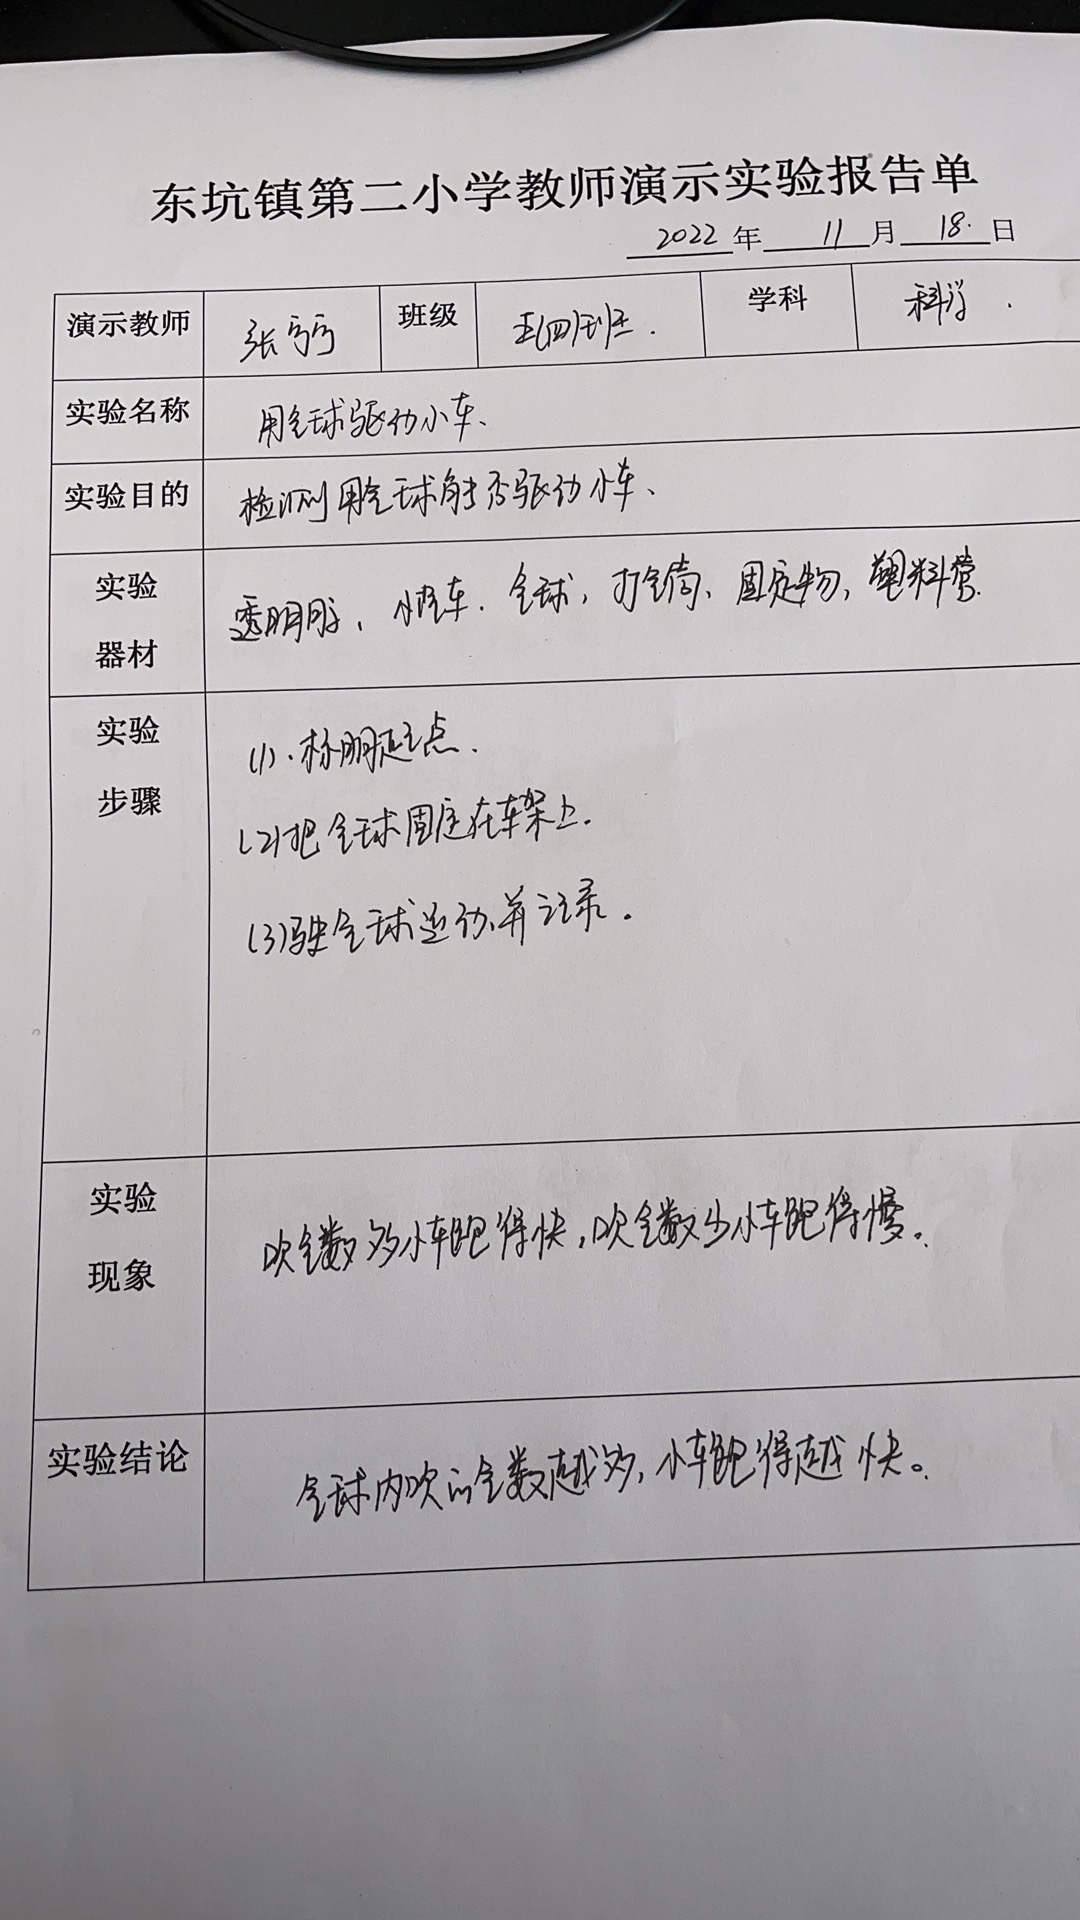 东坑镇第二小学教师演示实验报告单
2022年 11月 18.日
演示教师 张 班级 (四)班. 学科 科学.
实验名称 用气球驱动小车、
实验目的 检测用气球能否驱动小车、
实验 器材 透明胶, 小车. 气球, 打气筒、固定物, 塑料管.
实验 步骤 (1).标明起点.
(2)把气球固定在车架上.
(3)驶气球运动、并记录.
实验 现象 吹气数多小车跑得快,吹气数少小车跑得慢。
实验结论 气球内吹的气数越多,小车跑得越快。